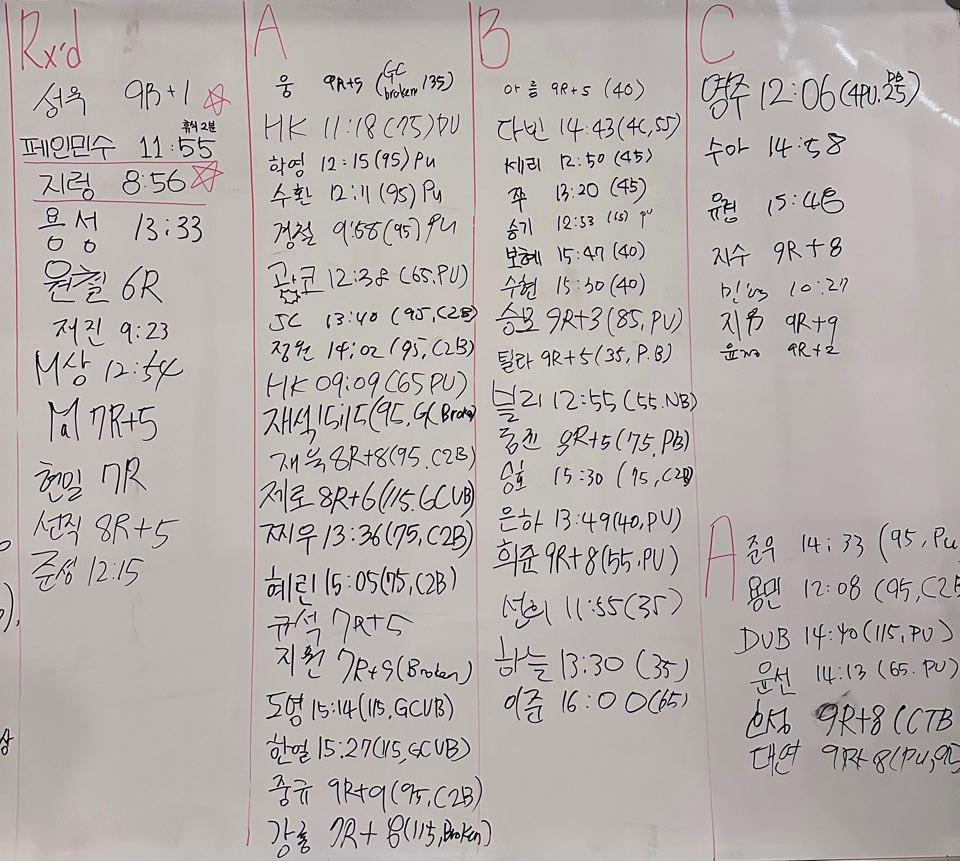 Rx'd
성욱 9R+1
휴식 2분
페인민수 11:55
지렁 8:56
용성 13:33
원철 6R
저진 9:23
M상 12:54
Mal 7R+5
현밀 7R
선직 8R+5
준성 12:15
A
웅 9R+5 (GC broken 135)
HK 11:18 (75) PU
학영 12:15 (95) Pu
수환 12:11 (95) Pu
경철 9:58 (95) PU
12:38 (65.PU)
SC 13:40 (95, C2B)
정원 14:02 (95, C2B)
HK 09:09 (65 PU)
재석 15:15 (95, GC Broke
재욱 8R+8 (95, C2B)
제로 8R+6 (115. GCUB)
찌우 13:36 (75, C2B)
혜린 15:05 (75, C2B)
규석 7R+5
지훤 7R+9 (Broken)
도영 15:14 (115, GCUB)
한얼 15:27 (115, GCUB)
중규 9R+9 (95, C2B)
강훈 7R+8 (115, Broken)
B
아름 9R+5 (40)
다빈 14:43 (4C, 55)
세리 12:50 (45)
쭈 13:20 (45)
승기 12:53 (15) PU
보혜 15:47 (40)
수현 15:30 (40)
승모 9R+3 (85, PU)
틸라 9R+5 (35, P.B)
블리 12:55 (55.NB)
9R+5 (75, PB)
승호 15:30 (75, C2B)
은하 13:49 (40, PU)
희준 9R+8 (55, PU)
선희 11:55 (35)
하늘 13:30 (35)
이준 16:00 (65)
C
명주 12:06 (4PU. 25)
수아 14:58
유림 15:48
지수 9R+8
10:27
지유 9R+9
9R+2
A
준우 14:33 (95, Pu
용민 12:08 (95, C2B
DUB 14:40 (115, PU)
윤선 14:13 (65. PU)
한성 9R+8 (CTB
대연 9R+8 (PU, 95